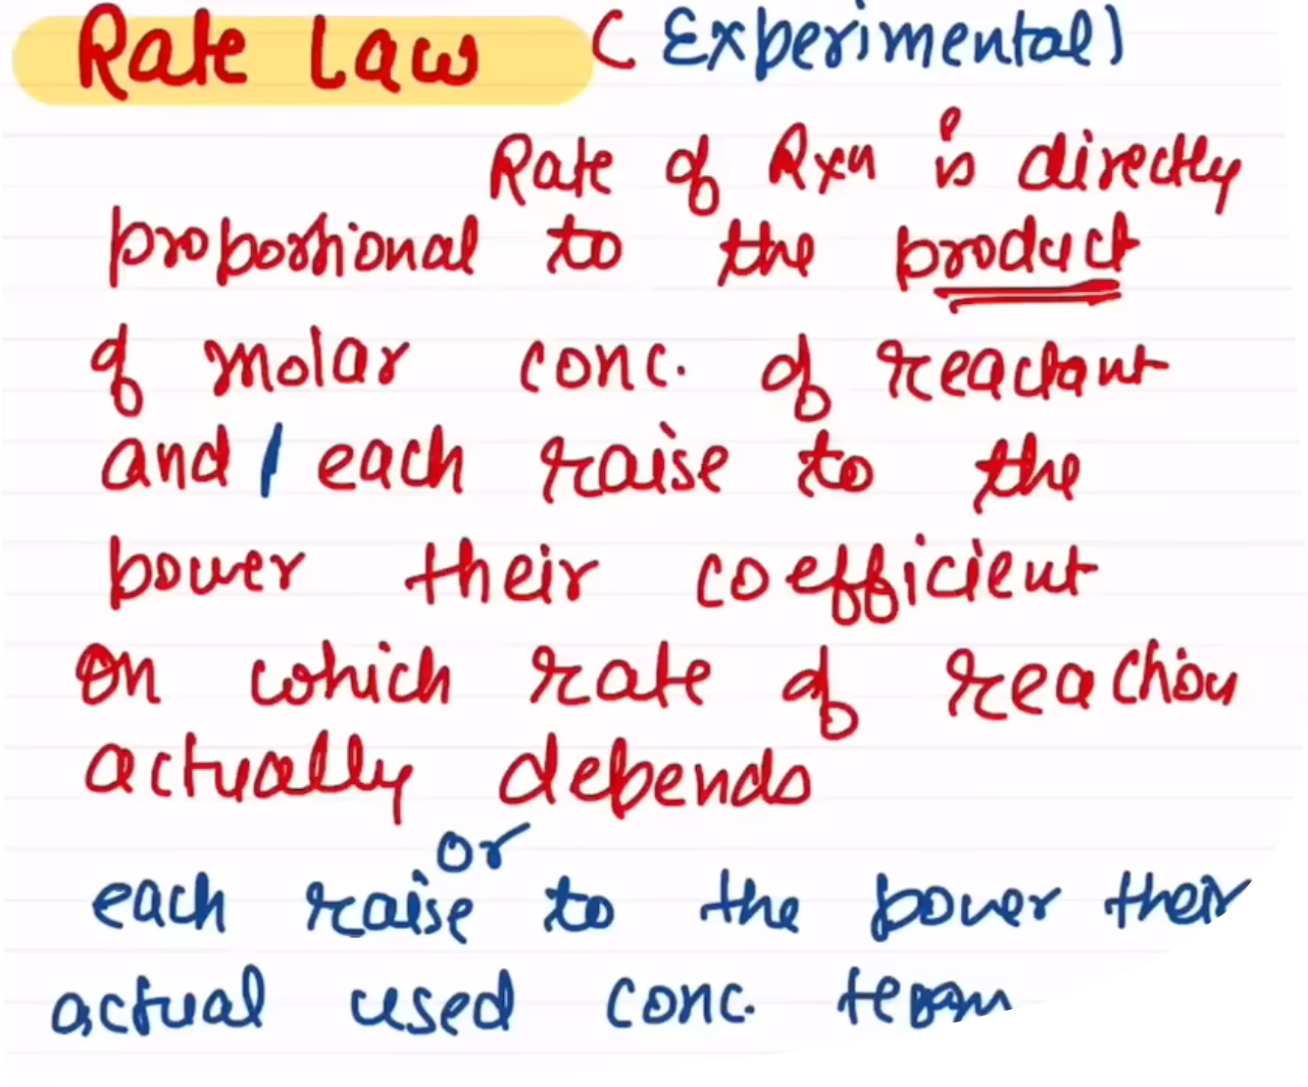 Rate Law (Experimental)
Rate of Rxn is directly
proportional to the product
of molar conc. of reactant
and each raise to the
power their coefficient
on which rate of reaction
actually depends
or
each raise to the power their
actual used conc. term